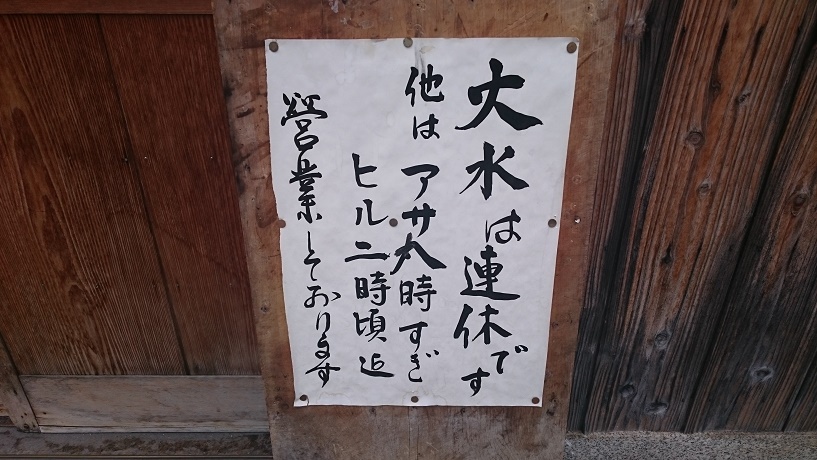 火水は連休です
他はアサ六時すぎ
ヒル二時頃迄
營業しております